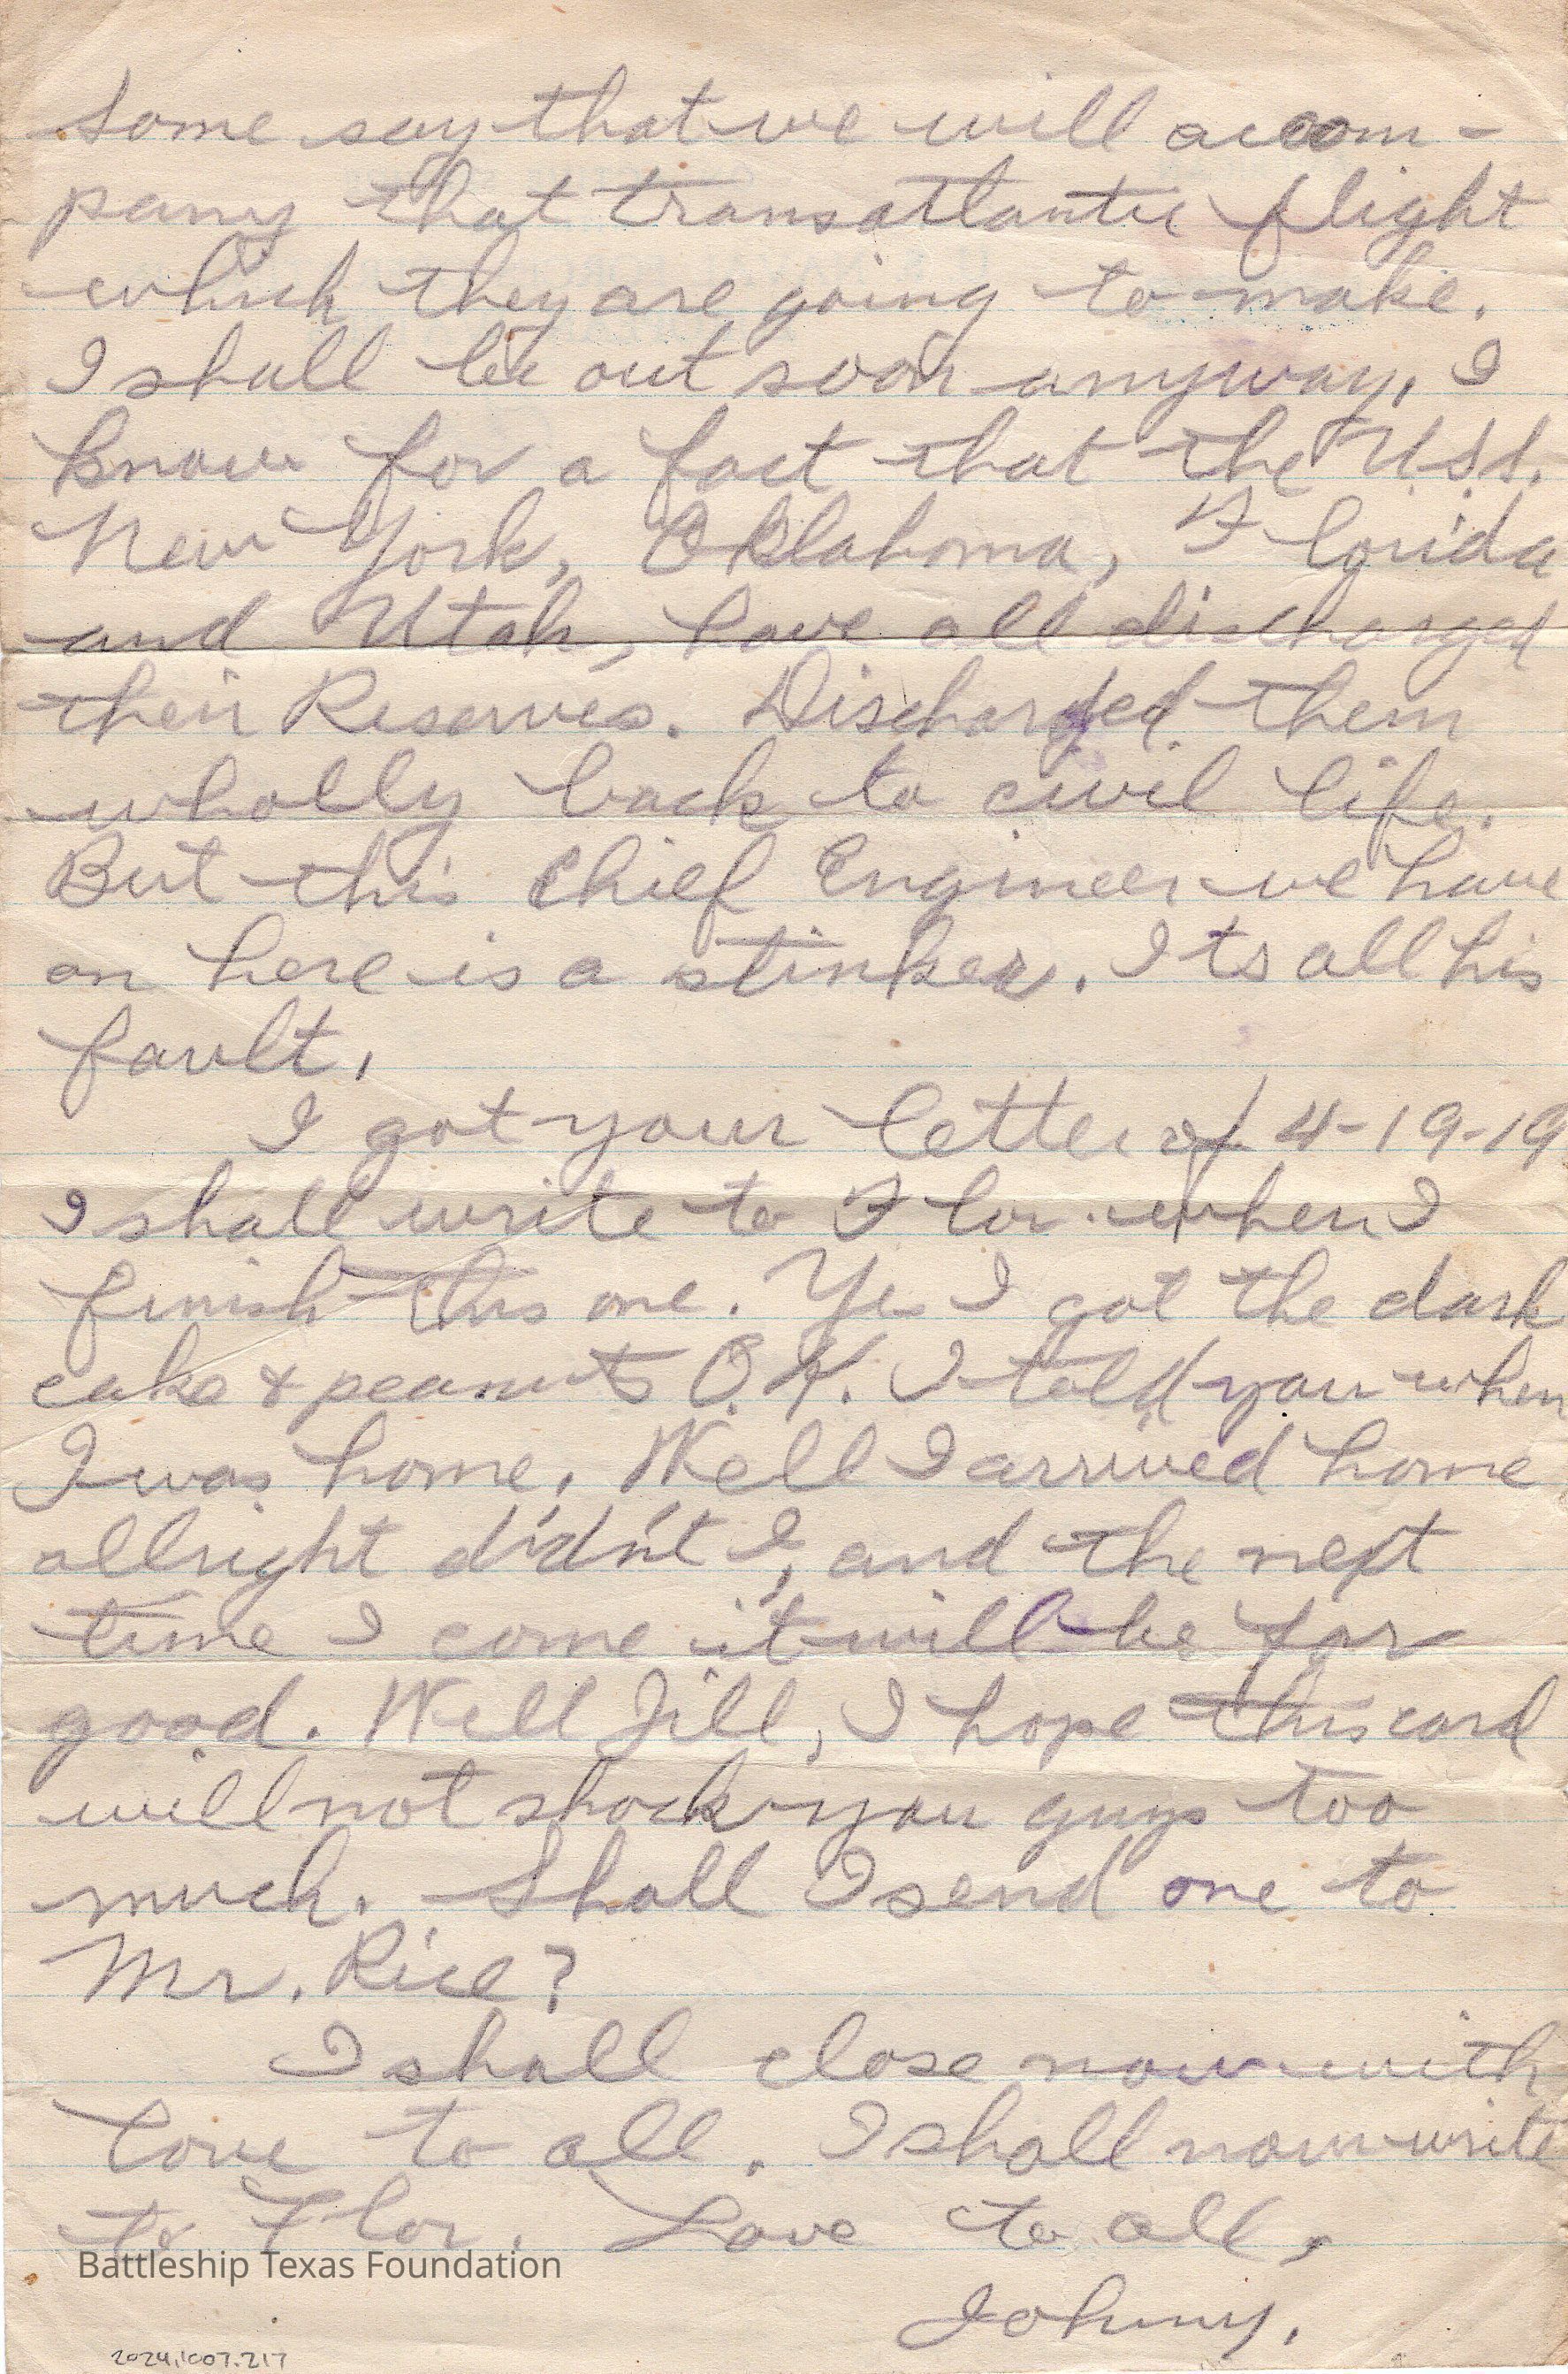 Some say that we will accom-
pany that transatlantic flight
which they are going to make.
I shall be out soon anyway, I
know for a fact that the U.S.S.
New York, Oklahoma, Florida
and Utah, have all discharged
their Reserves. Discharged them
wholly back to civil life.
But this Chief Engineer we have
on here is a stinker. Its all his
fault.
I got your letter of 4-19-19
I shall write to Flor. when I
finish this one. Yes I got the dark
cake & peanuts O.K. I told you when
I was home. Well I arrived home
allright didn't I, and the next
time I come it will be for
good. Well Jill, I hope this card
will not shock you guys too
much. Shall I send one to
Mr. Rice?
I shall close now with
love to all. I shall now write
to Flor. Love to all,
Johnny.
Battleship Texas Foundation
2024.1007.217